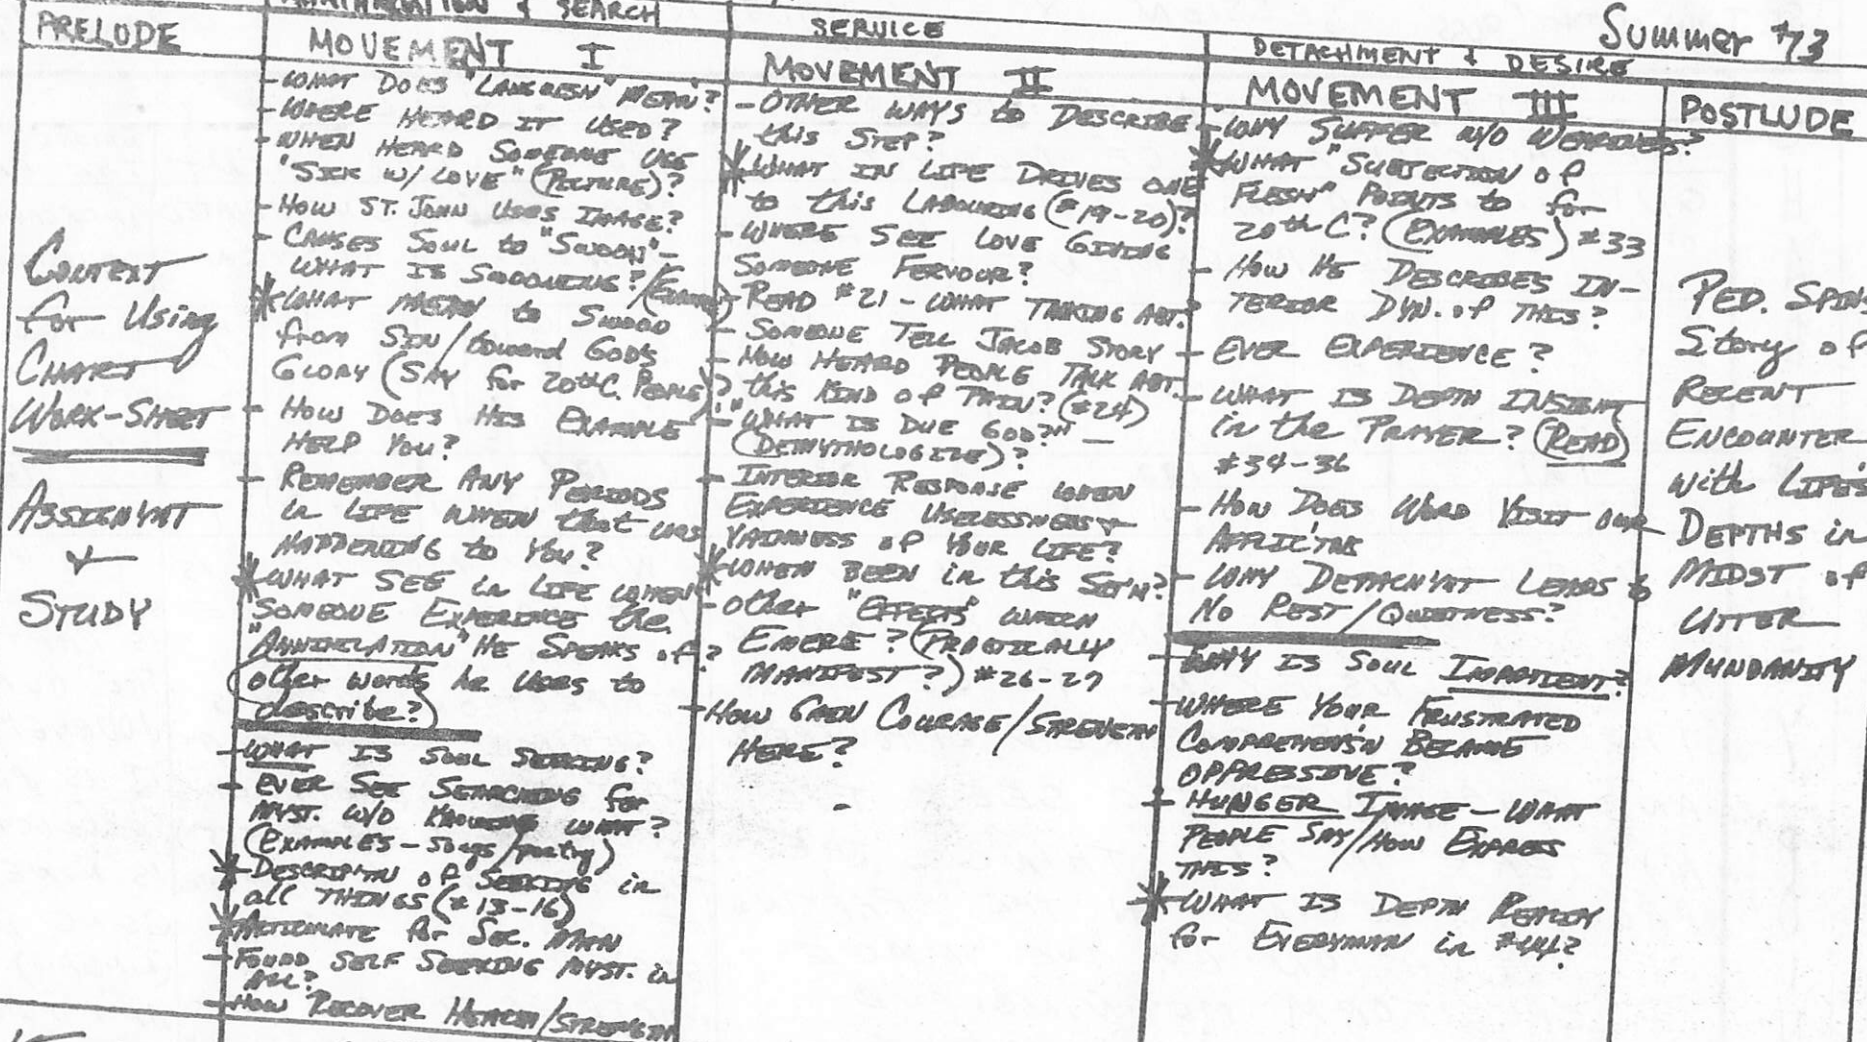 PRELUDE
Context
for Using
CHART
WORK-SHEET
ASSIGNM'T
+
STUDY
& SEARCH
MOVEMENT I
- WHAT DOES "LANGUISH" MEAN?
- WHERE HEARD IT USED?
- WHEN HEARD SOMEONE USE
"SICK W/ LOVE" (PICTURE)?
- HOW ST. JOHN USES IMAGE?
- CAUSES SOUL to "SWOON" -
WHAT IS SWOONING?
* WHAT MEAN to SWOON
from SIN/toward GOD'S
GLORY (SAY for 20th C. PEOPLE)?
- HOW DOES HIS EXAMPLE
HELP YOU?
- REMEMBER ANY PERIODS
in LIFE WHEN that WAS
HAPPENING to YOU?
* WHAT SEE in LIFE WHEN
SOMEONE EXPERIENCE the
"ANNIHILATION" HE SPEAKS of?
(other words he uses to
describe?)
- WHAT IS SOUL SEEKING?
- EVER SEE SEARCHING for
MYST. W/O KNOWING WHAT?
(EXAMPLES - songs/poetry)
* DESCRIPT'N of SEEKING in
all THINGS (#13-16)
* for SEC. MAN
- FOUND SELF SEEKING MYST. in
ALL?
- HOW RECOVER HEALTH/STRENGTH
SERVICE
MOVEMENT II
- OTHER WAYS to DESCRIBE
this STEP?
* WHAT IN LIFE DRIVES ONE
to this LABOURING (#19-20)?
- WHERE SEE LOVE GIVING
SOMEONE FERVOUR?
- READ #21 - WHAT TALKING ABT.
- SOMEONE TELL JACOB STORY
- HOW HEARD PEOPLE TALK ABT.
this KIND of PAIN? (#24)
- "WHAT IS DUE GOD?" -
(DEMYTHOLOGIZE)?
- INTERIOR RESPONSE WHEN
EXPERIENCE USELESSNESS +
VAINNESS of YOUR LIFE?
* WHEN BEEN in this SIT'N?
- other "EFFECTS" WHICH
EMERGE? (PRACTICALLY
MANIFEST?) #26-27
- HOW GAIN COURAGE/STRENGTH
HERE?
Summer '73
DETACHMENT & DESIRE
MOVEMENT III
- WHY SUFFER W/O WEARINESS?
* WHAT "SUBJECTION of
FLESH" POINTS to for
20th C? (EXAMPLES) #33
- HOW HE DESCRIBES IN-
TERIOR DYN. of THIS?
- EVER EXPERIENCE?
- WHAT IS DEPTH INSIGHT
in the PRAYER? (READ)
#34-36
- HOW DOES WORD VISIT OUR
AFFLIC'TNS
- WHY DETACHM'T LEADS to
NO REST/QUIETNESS?
- WHY IS SOUL IMPATIENT?
- WHERE YOUR FRUSTRATED
COMPREHENS'N BECAME
OPPRESSIVE?
- HUNGER IMAGE - WHAT
PEOPLE SAY/HOW EXPRESS
THIS?
* WHAT IS DEPTH REALITY
for EVERYMAN in #44?
POSTLUDE
PED. SPIN
Story of
RECENT
ENCOUNTER
with LIFE'S
DEPTHS in
MIDST of
UTTER
MUNDANITY